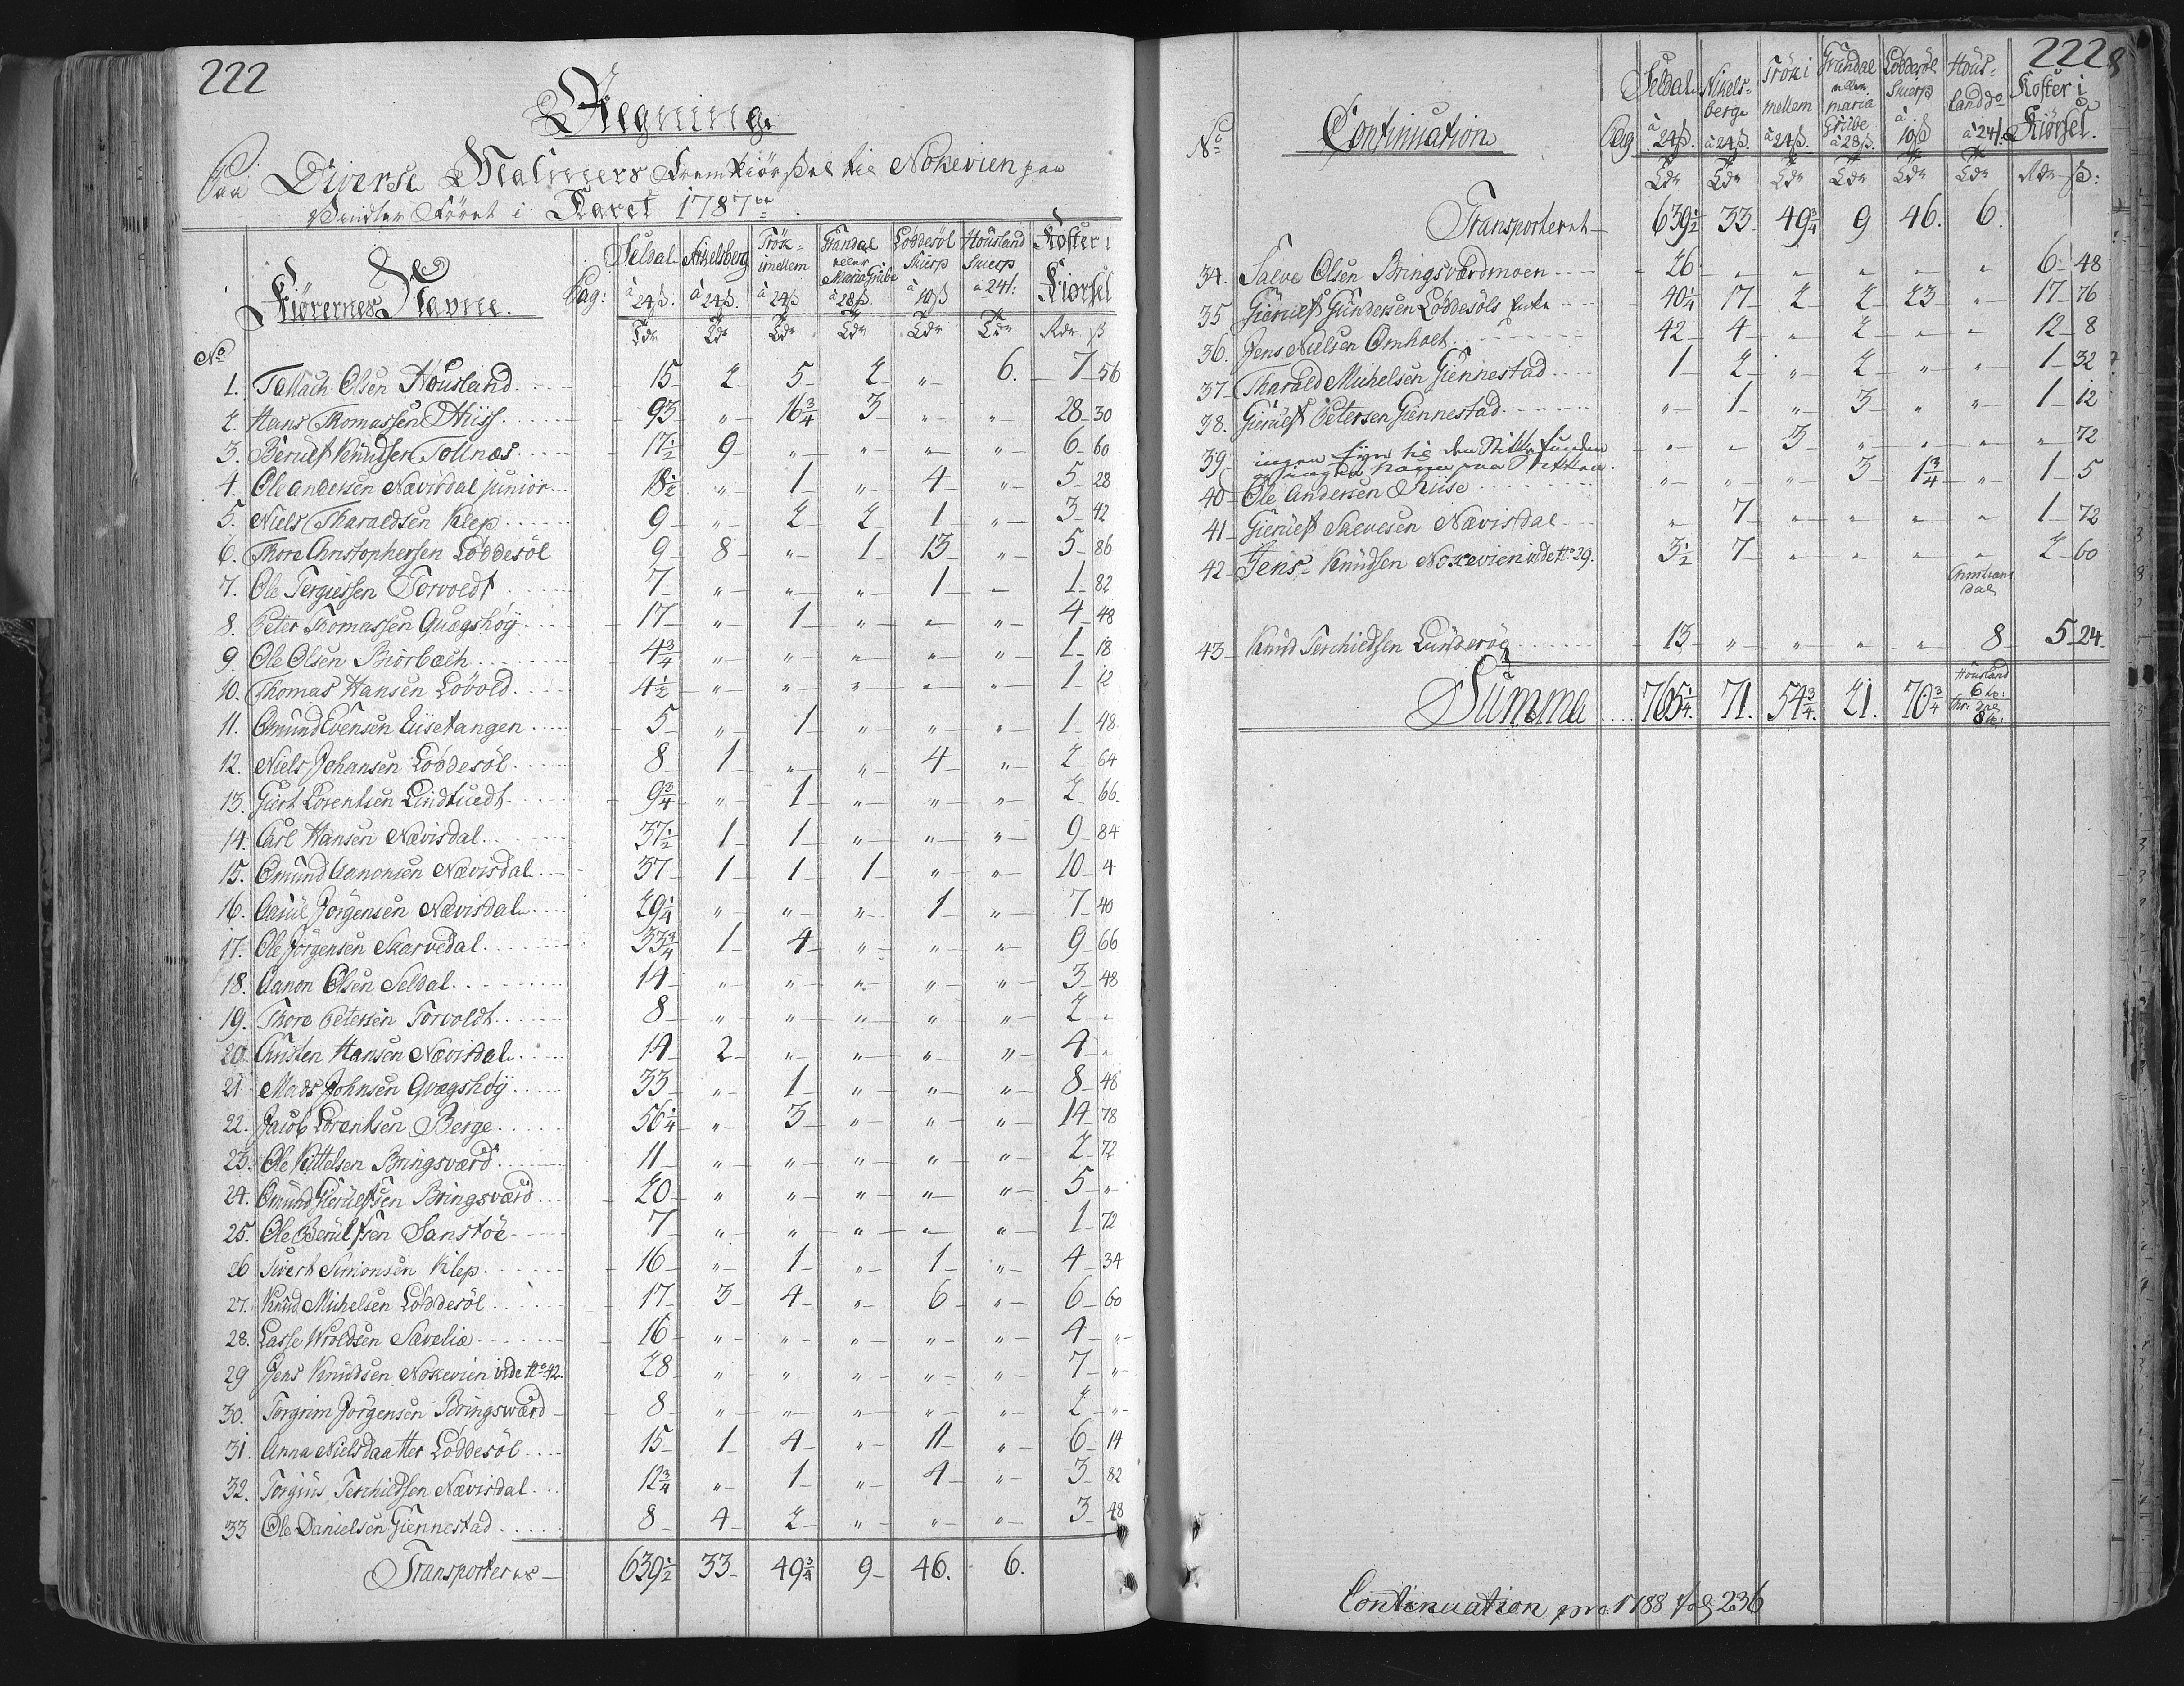 222
Regning
Paa Diverse Malmers Fremkiørsel til Nokevien paa
Vinter Føret i Aaret 1787
Kiørernes Navne. Pag: Seldal à 24ß. Nikelsberg à 24ß. Trök imellem à 24ß Grandal eller Maria Grube à 28ß. Løddesöl Skierp à 10ß Housland Skierp a 24ß: Koster i Kiørsel
No Tdr Tdr Tdr Tdr Tdr Tdr Rdr ß
1. Tallach Olsen Housland 15 2 5 2 " 6. 7 56
2. Hans Thomassen Riis 93 " 16 3/4 3 " " 28 30
3. Berulf Knudsen Tollnæs 17 1/2 9 " " " " 6 60
4. Ole Andersen Nævisdal junior 18 1/2 " 1 " 4 " 5 28
5. Niels Tharaldsen Klep 9 " 2 2 1 " 3 42
6. Thore Christophersen Løddesöl 9 8 " 1 13 " 5 86
7. Ole Tergiessen Torvoldt 7 " " " 1 " 1 82
8. Peter Thomassen Quægshøy 17 " 1 " " " 4 48
9. Ole Olsen Biørbæch 4 3/4 " " " " " 1 18
10. Thomas Hansen Løvold 4 1/2 " " " " " 1 12
11. Omund Evensen Eiisetangen 5 " 1 " " " 1 48
12. Niels Johansen Løddesöl 8 1 " " 4 " 2 64
13. Giert Lorentsen Lindtuedt 9 3/4 " 1 " " " 2 66
14. Carl Hansen Nævisdal 37 1/2 1 1 " " " 9 84
15. Omund Aanonsen Nævisdal 37 1 1 1 " " 10 4
16. Aasul Jørgensen Nævisdal 29 1/4 " " " 1 " 7 40
17. Ole Jørgensen Skarvedal 33 3/4 1 4 " " " 9 66
18. Aanon Olsen Seldal 14 " " " " " 3 48
19. Thore Petersen Torvoldt 8 " " " " " 2 "
20. Christen Hansen Nævisdal 14 2 " " " " 4 "
21 Mads Johnsen Qvægshøy 33 " 1 " " " 8 48
22. Jacob Lorentsen Berge 56 1/4 " 3 " " " 14 78
23. Ole Kittelsen Bringsværd 11 " " " " " 2 72
24. Omund Gierulfsen Bringsværd 20 " " " " " 5 "
25. Ole Berulfsen Sanstöe 7 " " " " " 1 72
26 Sivert Simonsen Klep 16 " 1 " 1 " 4 34
27. Knud Michelsen Løddesöl 17 3 4 " 6 " 6 60
28. Lasse Wroldsen Sævelie 16 " " " " " 4 "
29 Jens Knudsen Nokevien vide No 42. 28 " " " " " 7 "
30. Torgrim Jørgensen Bringsværd 8 " " " " " 2 "
31. Anna Nielsdaatter Løddesöl 15 1 4 " 11 " 6 14
32. Torgius Terchieldsen Nævisdal 12 3/4 " 1 " 4 " 3 82
33 Ole Danielsen Giennestad 8 4 2 " " " 3 48
Transporteres 639 1/2 33 49 3/4 9 46. 6.
222
No Continuation Pag Seldal à 24ß. Nikelsberge à 24ß. Trök i mellem à 24ß. Grandal eller maria Grube à 28ß. Løddesöl Skierp à 10ß Housland do à 24ß Koster i Kiørsel.
Tdr Tdr Tdr Tdr Tdr Tdr Rdr ß:
Transporteret 639 1/2 33 49 3/4 9 46. 6.
34. Salve Olsen Bringsværdmoen 26 " " " " " 6 48
35 Gierulf Gundersen Løddesöls Enke 40 1/4 17 2 2 23 " 17 76
36. Jens Nielsen Omholt 42 4 " 2 " " 12 8
37 Tharald Michelsen Giennestad 1 2 " 2 " " 1 32
38. Gierulf Petersen Giennestad " 1 " 3 " " 1 12
39 ingen Eyer til den Stitte funden og ingen Navn paa Stitten. " " 3 " " " " 72
40 Ole Andersen Riise " " " 3 1 3/4 " 1 5
41 Gierulf Salvesen Nævisdal " 7 " " " " 1 72
42 Jens Knudsen Nokevien vide No 29. 3 1/2 7 " " " " 2 60
Christians dal
43 Knud Terchieldsen Lunderög 13 " " " " 8 5 24
Summa 765 1/4. 71. 54 3/4. 21. 70 3/4 Housland 6 to: Chr: dal 8 to:
Continuation pro 1788 fol 236